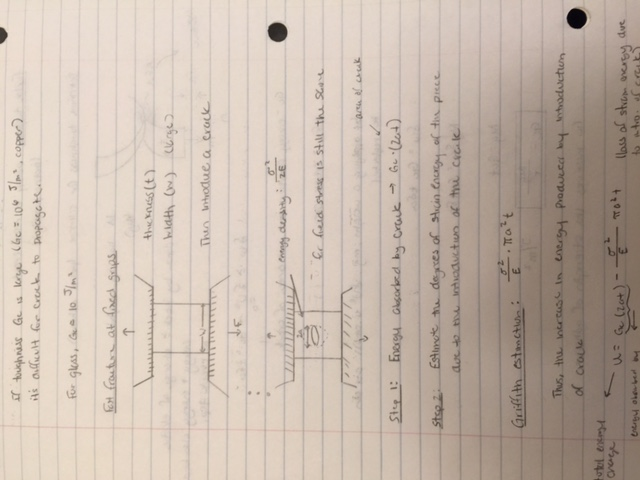 If toughness Gc is large (Gc = 10⁶ J/m², copper)
it's difficult for crack to propagate.
For glass, Gc = 10 J/m²
For fracture at fixed grips
thickness (t)
Width (w) (large)
Then introduce a crack
energy density: σ²/2E
far field stress is still the same
area of crack
Step 1: Energy absorbed by crack → Gc·(2at)
Step 2: Estimate the degree of strain energy of the piece
due to the introduction of the crack
Griffith estimation: σ²/E · πa²t
Thus, the increase in energy produced by introduction
of crack
total energy
change
U = Gc(2at) - σ²/E πa²t
(loss of strain energy due
to intro. of crack)
energy absorbed by